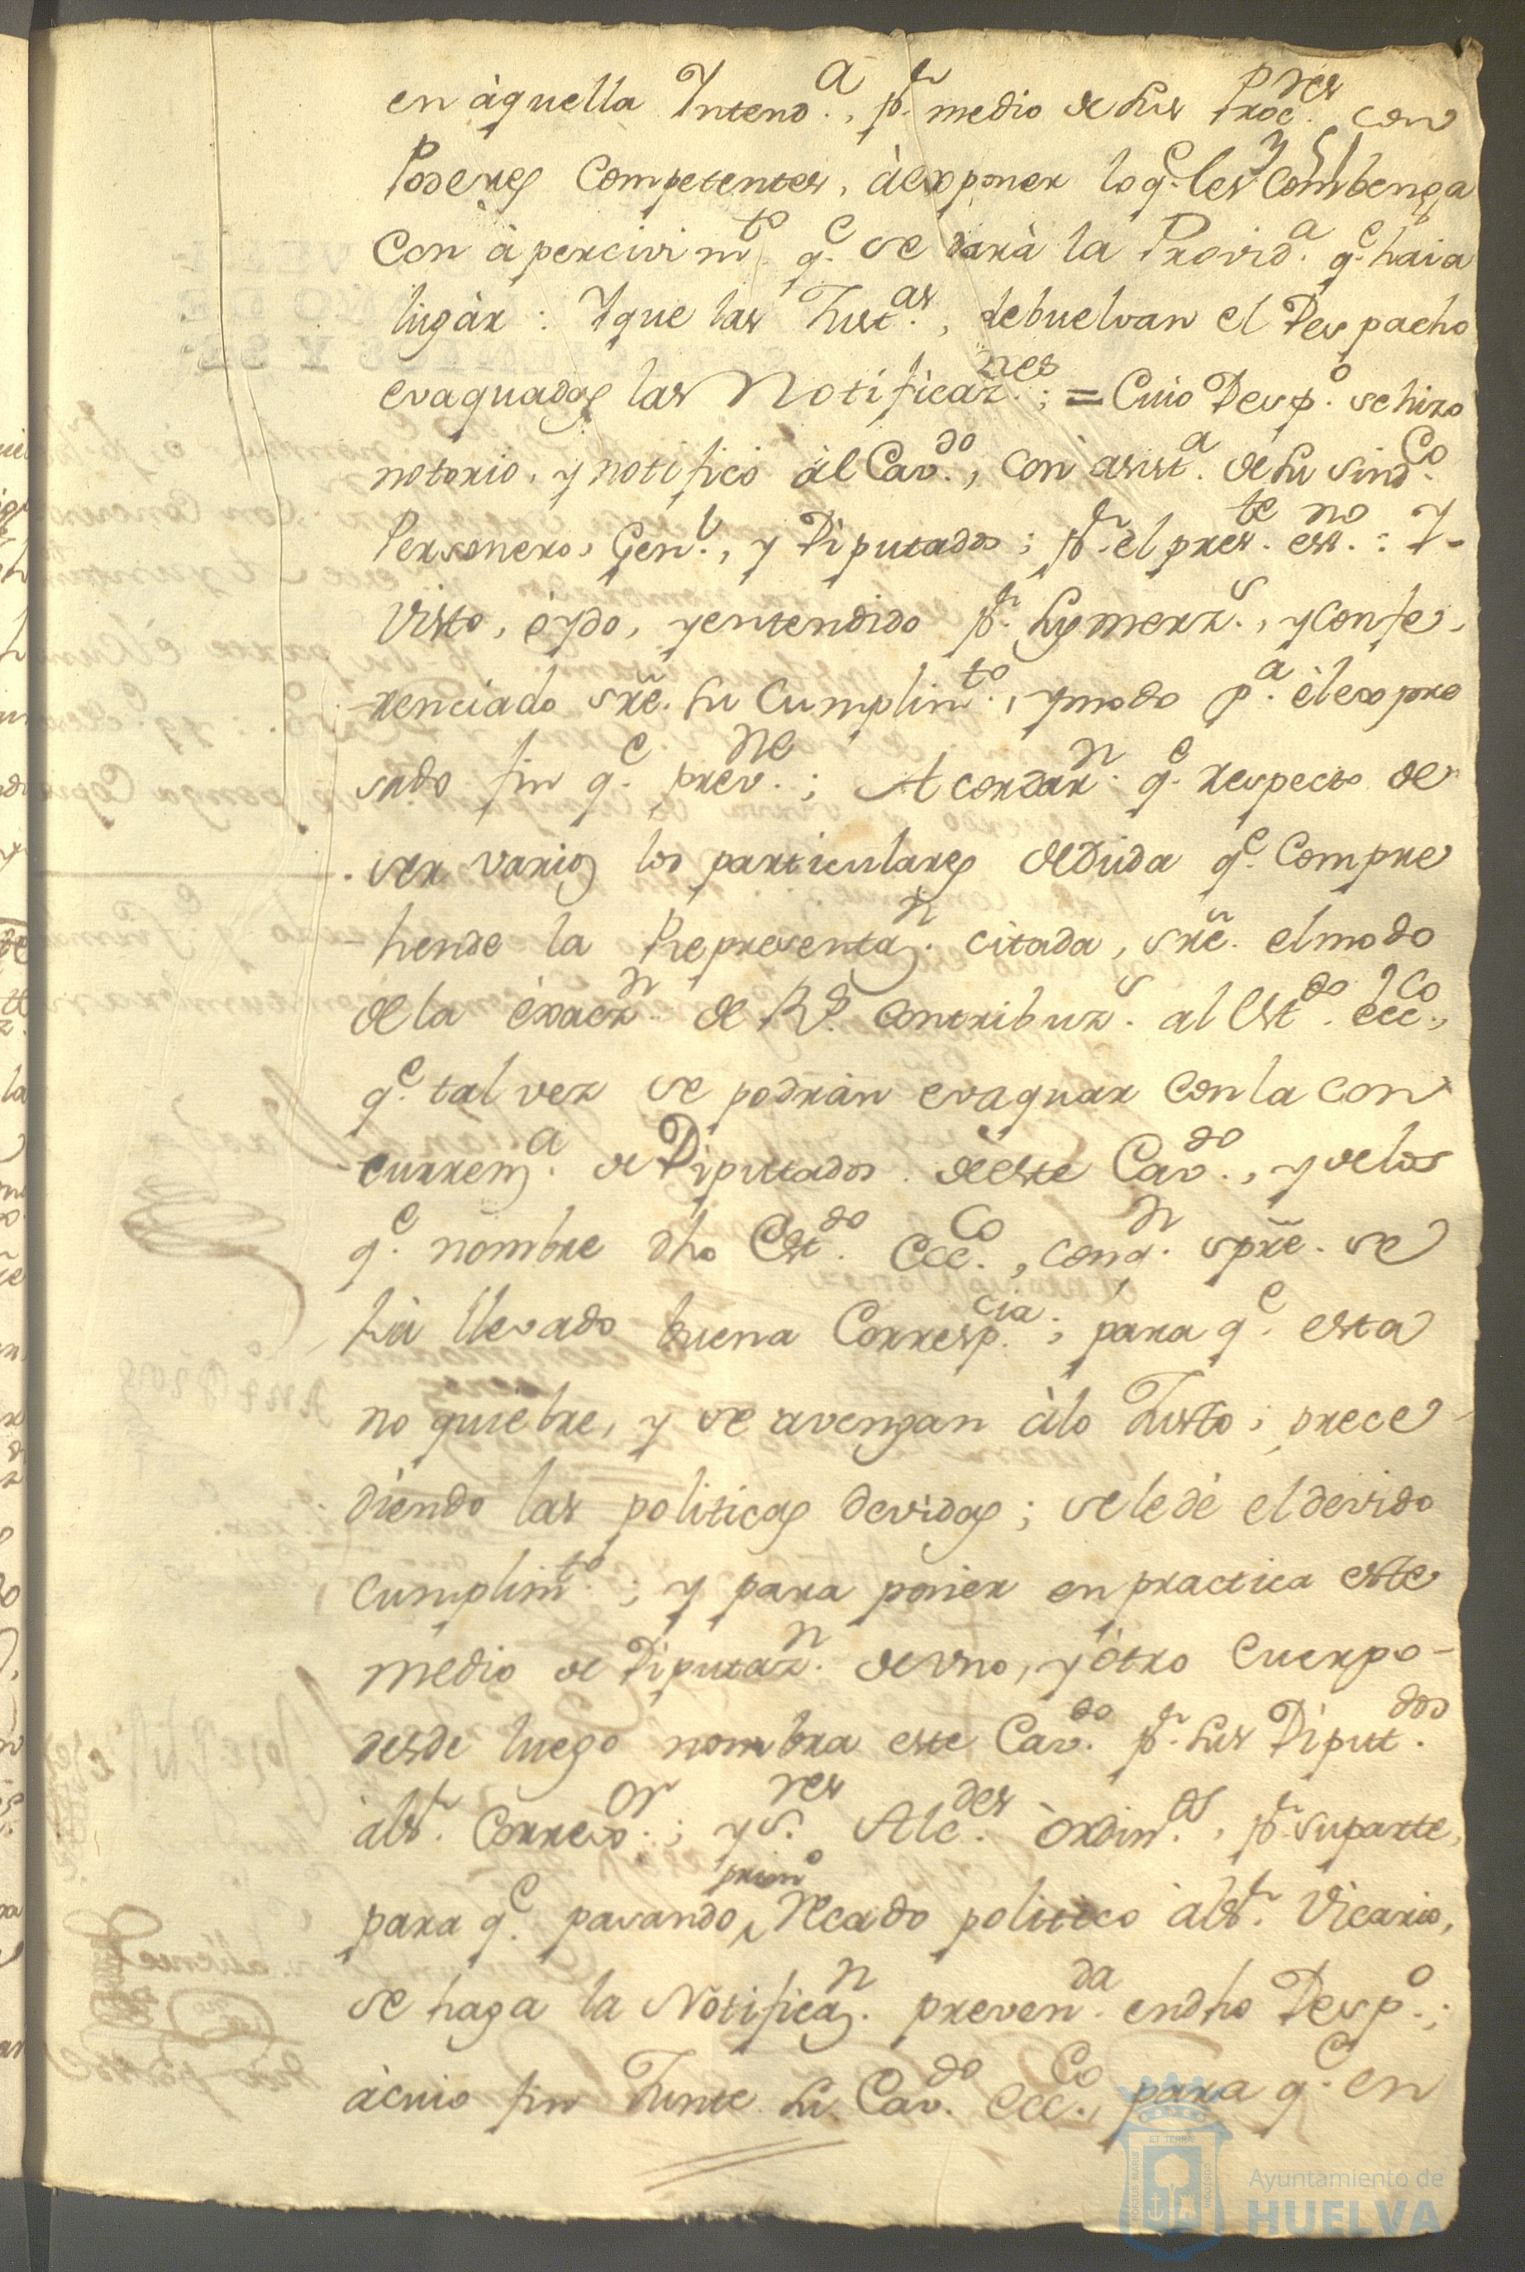 en àquella Yntend.ª, p.r medio de sus Proc.res con
Poderes Competentes, àexponer loq.e les Combenga
Con àpercivim.to q.e se darà la Provid.ª q.e haia
lugàr: Yque las Just.as, debuelvan el Despacho
evaquadas las Notificaz.nes; = Cuio Desp.º se hizo
notorio, y notificò àl Cav.do, con asist.ª de su sind.co
Personero, Gen.l, y Diputados; p.r el pres.te ess.no: Y
Visto, òydo, y entendido p.r sus merz.s, y confe
renciado sre. su Cumplim.to, y modo p.ª èl expre
sado fin q.e prev.ne; Acordar.n q.e respecto de
ser varios los particulares de duda q.e Compre
hende la Representaz.n citada, sre. el modo
de la èxacz.n de R.s Contribuz.s al Est.do ecc.co,
q.e tal vez se podràn evaquar con la con
currenz.ª de Diputados de este Cav.do, y de los
q.e nombre dho Est.do Ecc.co, con q.n spre. se
hà llevado buena Corresp.cia; para q.e esta
no quiebre, y se avengan àlo Justo; prece
diendo las politicas devidas; se le dè el devido
cumplim.to; y para poner en practica este
medio de Diputaz.n de uno, y òtro Cuerpo
desde luego nombra este Cav.do p.r sus Diput.dos
àl s.r Correx.or; y s.res Alc.des òrdin.os, p.r su parte,
para q.e pasando prim.º Recado politico àl s.r Vicario,
se haga la Notificaz.n preven.da en dho Desp.º;
à cuio fin Junte su Cav.do ecc.co, para q.e en
Ayuntamiento de
HUELVA